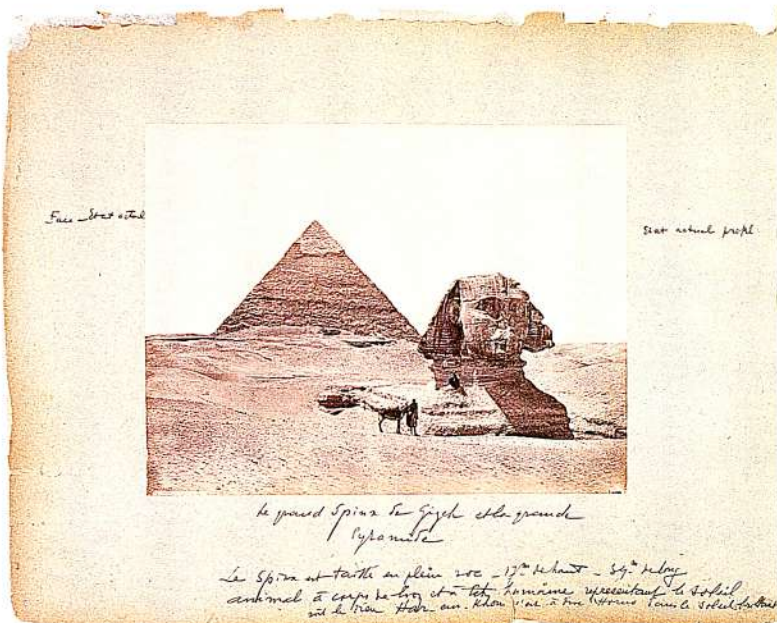 Face - Etat actuel
Etat actuel profil
Le grand Spinx de Gizeh et la grande
Pyramide
Le Spinx est taillé en plein roc - 17m de haut - 39m de long
animal à corps de lion et à tête humaine représentant le soleil
soit le dieu Har em Khou c'est à dire Horus dans le soleil brillant